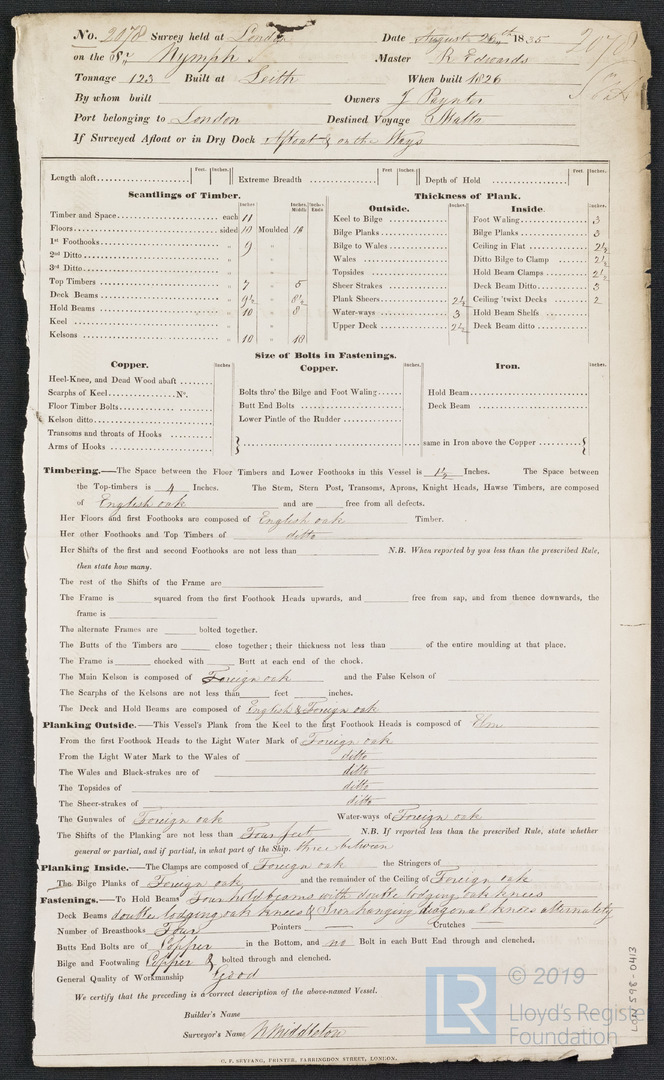 No. 2078 Survey held at London Date August 26th 1835
on the Sr Nymph Master R Edwards
Tonnage 123 Built at Leith When built 1826
By whom built Owners J Paynter
Port belonging to London Destined Voyage Malta
If Surveyed Afloat or in Dry Dock Afloat & on the Ways
2078
Length aloft Feet. Inches. Extreme Breadth Feet Inches. Depth of Hold feet Inches.
Scantlings of Timber. Thickness of Plank.
Inches Inches. Middle Inches Ends Outside. Inches. Inside. Inches.
Timber and Space each 11 Keel to Bilge Foot Waling 3
Floors sided 10 Moulded 12 Bilge Planks Bilge Planks 3
1st Foothooks " 9 " Bilge to Wales Ceiling in Flat 2½
2nd Ditto " " Wales Ditto Bilge to Clamp 2½
3rd Ditto " " Topsides Hold Beam Clamps 2½
Top Timbers " 7 " 5 Sheer Strakes Deck Beam Ditto 3
Deck Beams " 9½ " 8½ Plank Sheers 2½ Ceiling 'twixt Decks 2
Hold Beams " 10 " 8 Water-ways 3 Hold Beam Shelfs
Keel " " Upper Deck 2½ Deck Beam ditto
Kelsons " 10 " 18
Size of Bolts in Fastenings.
Copper. Inches. Copper. Inches. Iron. Inches.
Heel-Knee, and Dead Wood abaft
Scarphs of Keel No. Bolts thro' the Bilge and Foot Waling Hold Beam
Floor Timber Bolts Butt End Bolts Deck Beam
Kelson ditto Lower Pintle of the Rudder
Transoms and throats of Hooks
Arms of Hooks same in Iron above the Copper
Timbering.—The Space between the Floor Timbers and Lower Foothooks in this Vessel is 1½ Inches. The Space between
the Top-timbers is 4 Inches. The Stem, Stern Post, Transoms, Aprons, Knight Heads, Hawse Timbers, are composed
of English oak and are free from all defects.
Her Floors and first Foothooks are composed of English oak Timber.
Her other Foothooks and Top Timbers of ditto
Her Shifts of the first and second Foothooks are not less than N.B. When reported by you less than the prescribed Rule,
then state how many.
The rest of the Shifts of the Frame are
The Frame is squared from the first Foothook Heads upwards, and free from sap, and from thence downwards, the
frame is
The alternate Frames are bolted together.
The Butts of the Timbers are close together; their thickness not less than of the entire moulding at that place.
The Frame is chocked with Butt at each end of the chock.
The Main Kelson is composed of Foreign oak and the False Kelson of
The Scarphs of the Kelsons are not less than feet inches.
The Deck and Hold Beams are composed of English & Foreign oak
Planking Outside.—This Vessel's Plank from the Keel to the first Foothook Heads is composed of Elm
From the first Foothook Heads to the Light Water Mark of Foreign oak
From the Light Water Mark to the Wales of ditto
The Wales and Black-strakes are of ditto
The Topsides of ditto
The Sheer-strakes of ditto
The Gunwales of Foreign oak Water-ways of Foreign oak
The Shifts of the Planking are not less than Four feet N.B. If reported less than the prescribed Rule, state whether
general or partial, and if partial, in what part of the Ship. three between
Planking Inside.—The Clamps are composed of Foreign oak the Stringers of
The Bilge Planks of Foreign oak and the remainder of the Ceiling of Foreign oak
Fastenings.—To Hold Beams Four hold beams with double lodging oak knees
Deck Beams double lodging oak knees & Iron hanging diagonal knees alternately
Number of Breasthooks Four Pointers — Crutches —
Butts End Bolts are of Copper in the Bottom, and no Bolt in each Butt End through and clenched.
Bilge and Footwaling Copper & bolted through and clenched.
General Quality of Workmanship Good
We certify that the preceding is a correct description of the above-named Vessel.
Builder's Name
Surveyor's Name N Middleton
C. F. SEYFANG, PRINTER, FARRINGDON STREET, LONDON.
LON 598-0413
LR © 2019
Lloyd's Register
Foundation